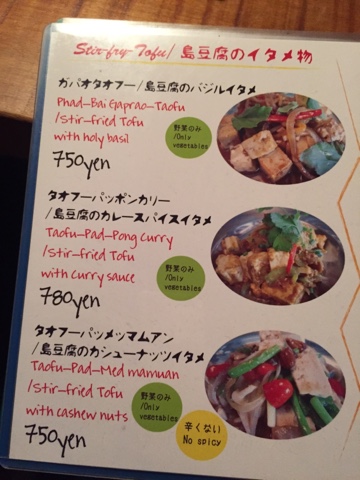 Stir-fry Tofu/ 島豆腐のイタメ物
ガパオタオフー/島豆腐のバジルイタメ
Phad-Bai Gaprao-Taofu
/Stir-fried Tofu
with holy basil
野菜のみ
/Only
vegetables
750yen
タオフーパッポンカリー
/島豆腐のカレースパイスイタメ
Taofu-Pad-Pong Curry
/Stir-fried Tofu
with curry sauce
野菜のみ
/Only
vegetables
780yen
タオフーパッメッマムアン
/島豆腐のカシューナッツイタメ
Taofu-Pad-Med mamuan
/Stir-fried Tofu
with cashew nuts
野菜のみ
/Only
vegetables
辛くない
No spicy
750yen